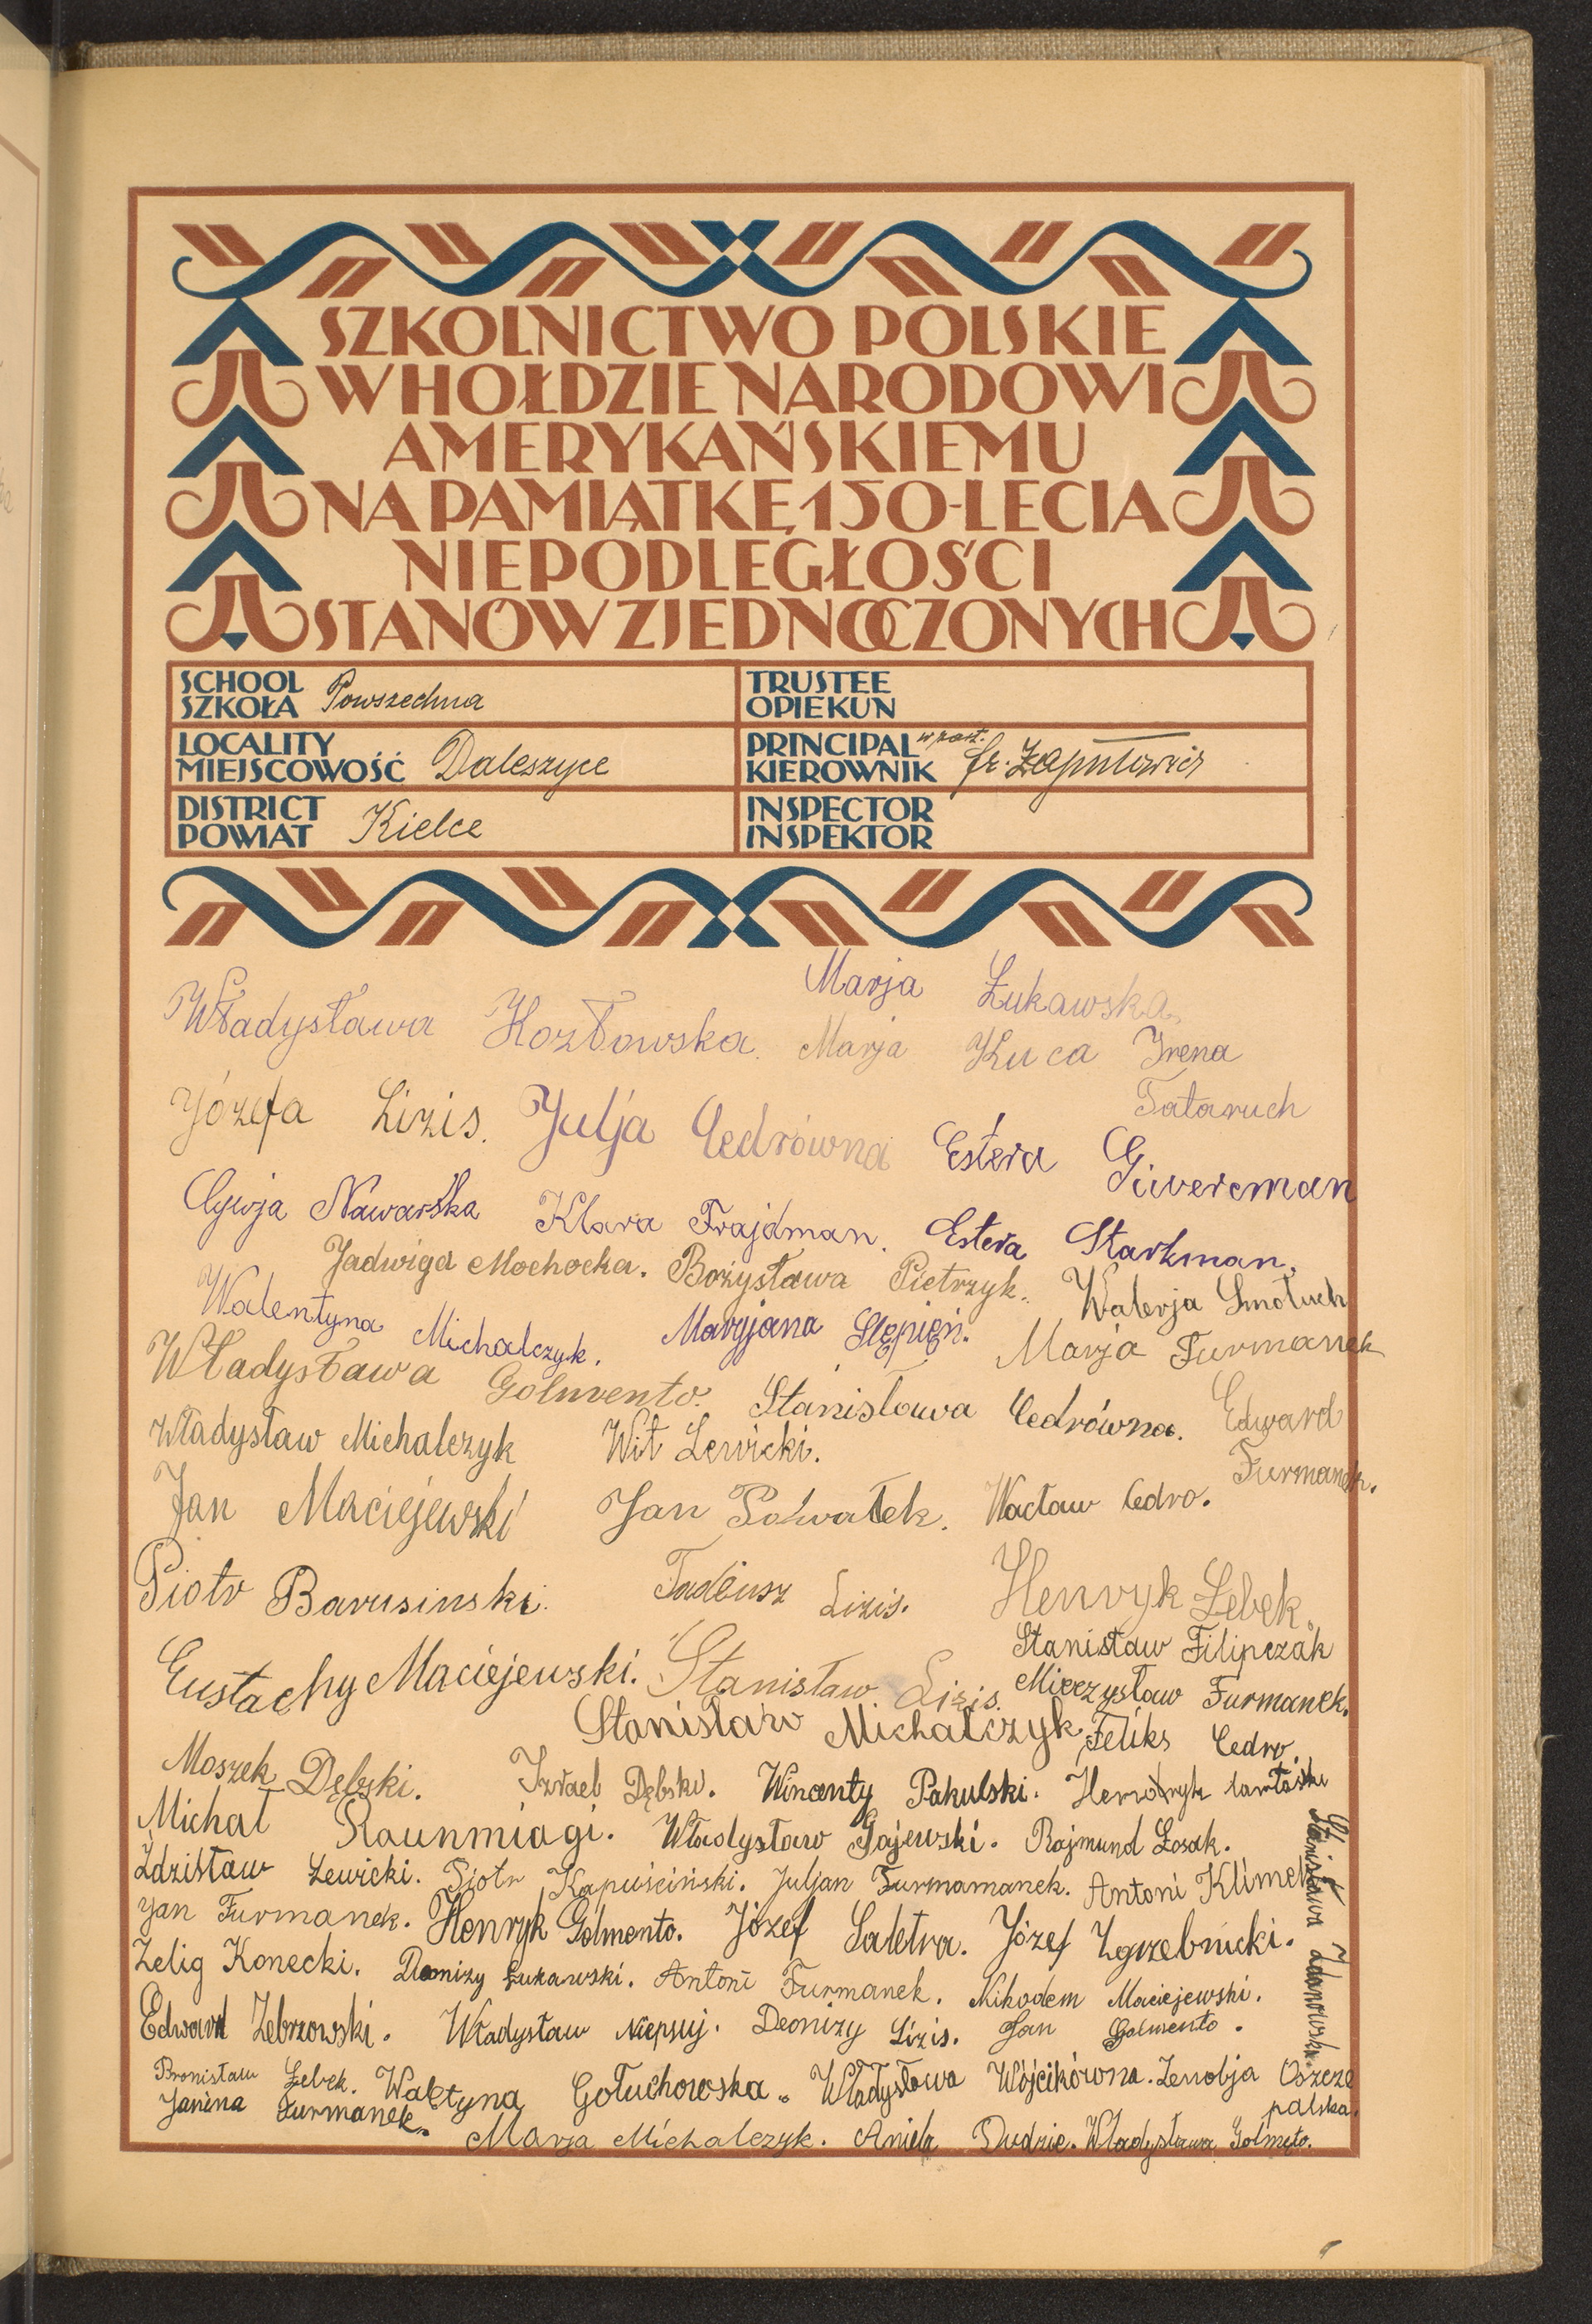 SZKOLNICTWO POLSKIE
W HOŁDZIE NARODOWI
AMERYKAŃSKIEMU
NA PAMIĄTKĘ 150-LECIA
NIEPODLEGŁOŚCI
STANÓW ZJEDNOCZONYCH
SCHOOL
SZKOŁA Powszechna
TRUSTEE
OPIEKUN
LOCALITY
MIEJSCOWOŚĆ Daleszyce
PRINCIPAL
KIEROWNIK fr.
DISTRICT
POWIAT Kielce
INSPECTOR
INSPEKTOR
Marja Łukawska
Władysława Kozłowska. Marja Kuca Irena
Tataruch
Józefa Lizis. Julja Cedrówna Estera Giwercman
Cywja Nawarska Klara Frajdman. Estera Starkman.
Jadwiga Mochocka. Bożysława Pietrzyk. Walerja Smołuch
Walentyna Michalczyk. Maryjana Stępień. Marja Furmanek
Władysława Golmento. Stanisława Cedrówna. Edward
Furmanek.
Władysław Michalczyk Wit Lewicki.
Jan Maciejewski Jan Powałek. Wacław Cedro.
Piotr Barusinski. Tadeusz Lizis. Henryk Lebek.
Stanisław Filipczak
Eustachy Maciejewski. Stanisław Lizis. Mieczysław Furmanek.
Stanisław Michalczyk Feliks Cedro
Moszek Dębski. Izrael Dębski. Wincenty Pakulski.
Michał Raunmiagi. Władysław Gajewski. Rajmund Łosak.
Zdzisław Lewicki. Piotr Kapuściński. Juljan Furmamanek. Antoni Klimek
Jan Furmanek. Henryk Golmento. Józef Saletra. Józef Zgrzebnicki.
Stanisława Zdanowska
Zelig Konecki. Deonizy Łukawski. Antoni Furmanek. Nikodem Maciejewski.
Edward Zebrzowski. Władysław Niepsuj. Deonizy Lizis. Jan Golmento.
Bronisław Lebek. Walętyna Gołuchowska. Władysława Wójcikówna. Zenobja Oszcze
palska.
Janina Furmanek.
Marja Michalczyk. Aniela Dudzic. Władysława Golmęto.